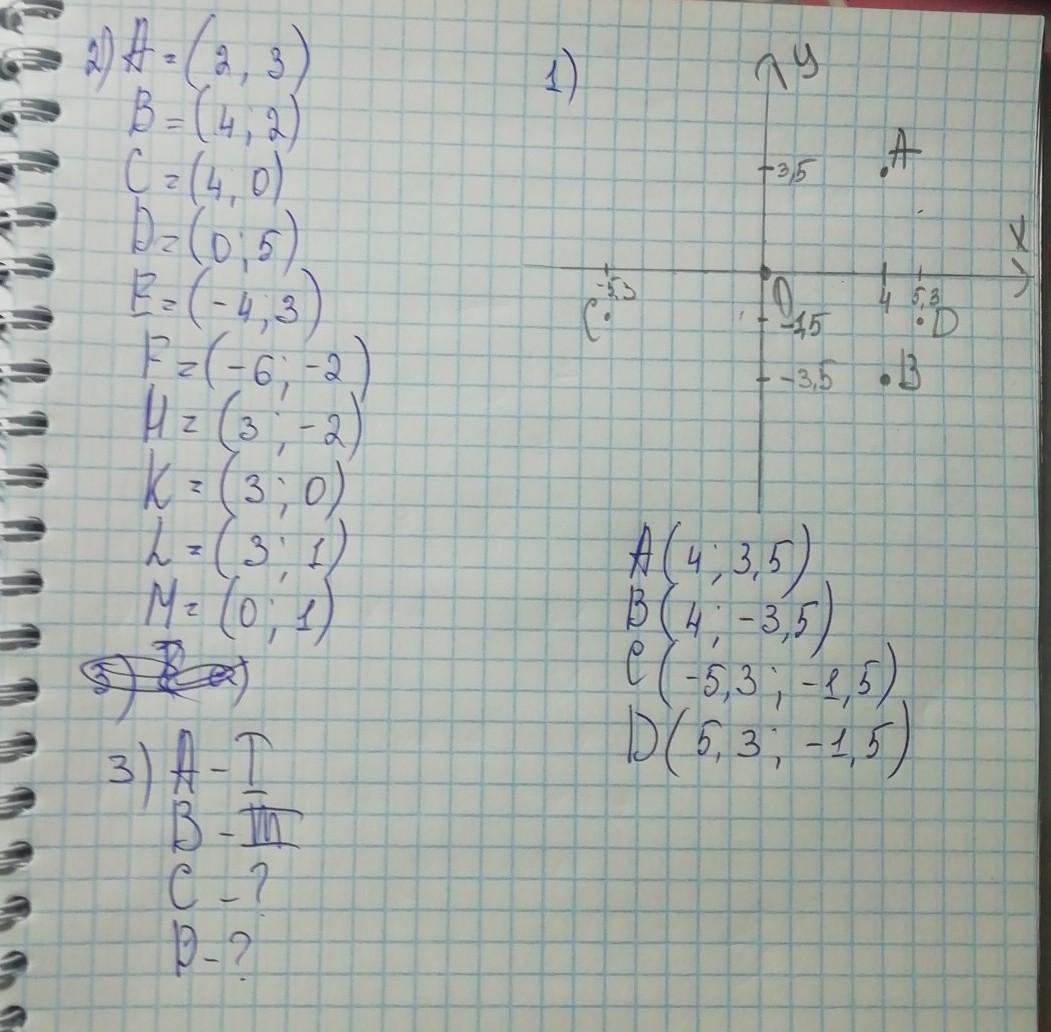 2) A = (2, 3)
B = (4; 2)
C = (4, 0)
D = (0; 5)
E = (-4; 3)
F = (-6; -2)
H = (3; -2)
K = (3; 0)
L = (3; 1)
M = (0; 1)
3)
3) A - I
B - III
C - ?
D - ?
1)
y
A
3,5
X
-5,3
O
4
5,3
C
-1,5
D
-3,5
B
A (4; 3,5)
B (4; -3,5)
C (-5,3; -1,5)
D (5,3; -1,5)